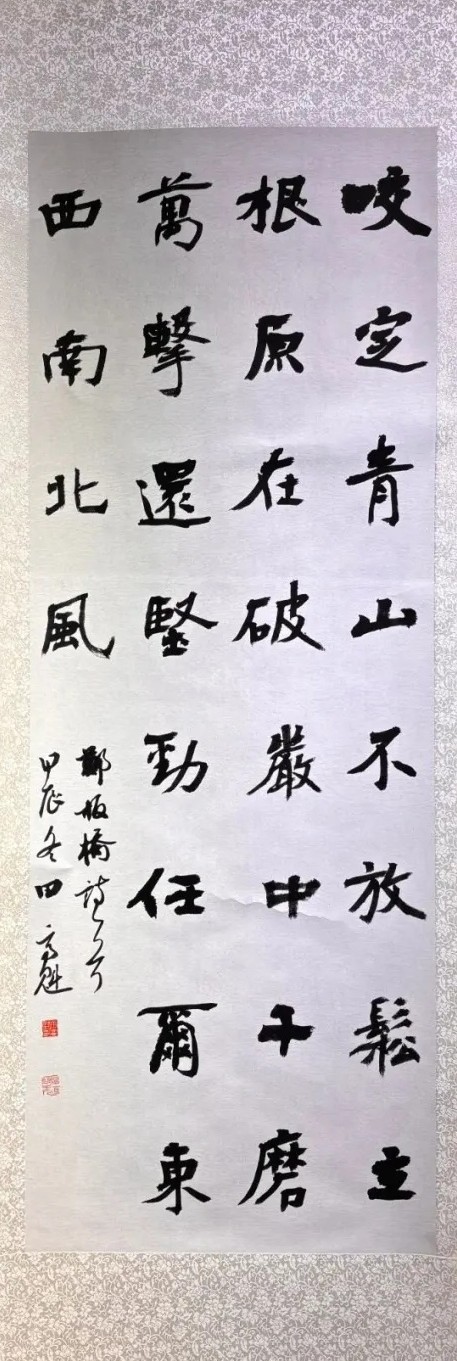 咬定青山不放鬆立
根原在破巖中千磨
萬擊還堅勁任爾東
西南北風
鄭板橋詩一首
甲辰冬田高魁